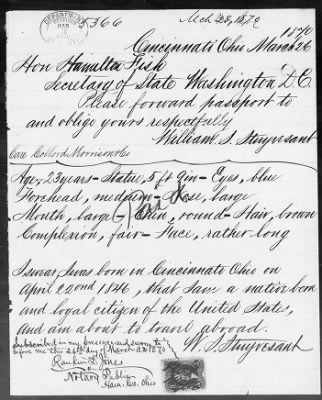 DEPARTMENT
MAR
5366
Mch 28, 1870
1870
Cincinnati Ohio March 26
Hon Hamilton Fish
Secretary of State Washington D.C.
Please forward passport to
and oblige yours respectfully
William S. Stuyvesant
Care Collord Morrison & Co
Age, 23 years - Stature, 5 ft 9 in - Eyes, blue
Forehead, medium - Nose, large
Mouth, large - Chin, round - Hair, brown
Complexion, fair - Face, rather long
I swear, I was born in Cincinnati Ohio on
April 22ond 1846, that I am a native born
and loyal citizen of the United States,
and am about to travel abroad.
W. S. Stuyvesant
Subscribed in my presence and sworn to
before me this 26th day of March AD 1870
Rankin D. Jones
Notary Public
Ham. Co. Ohio